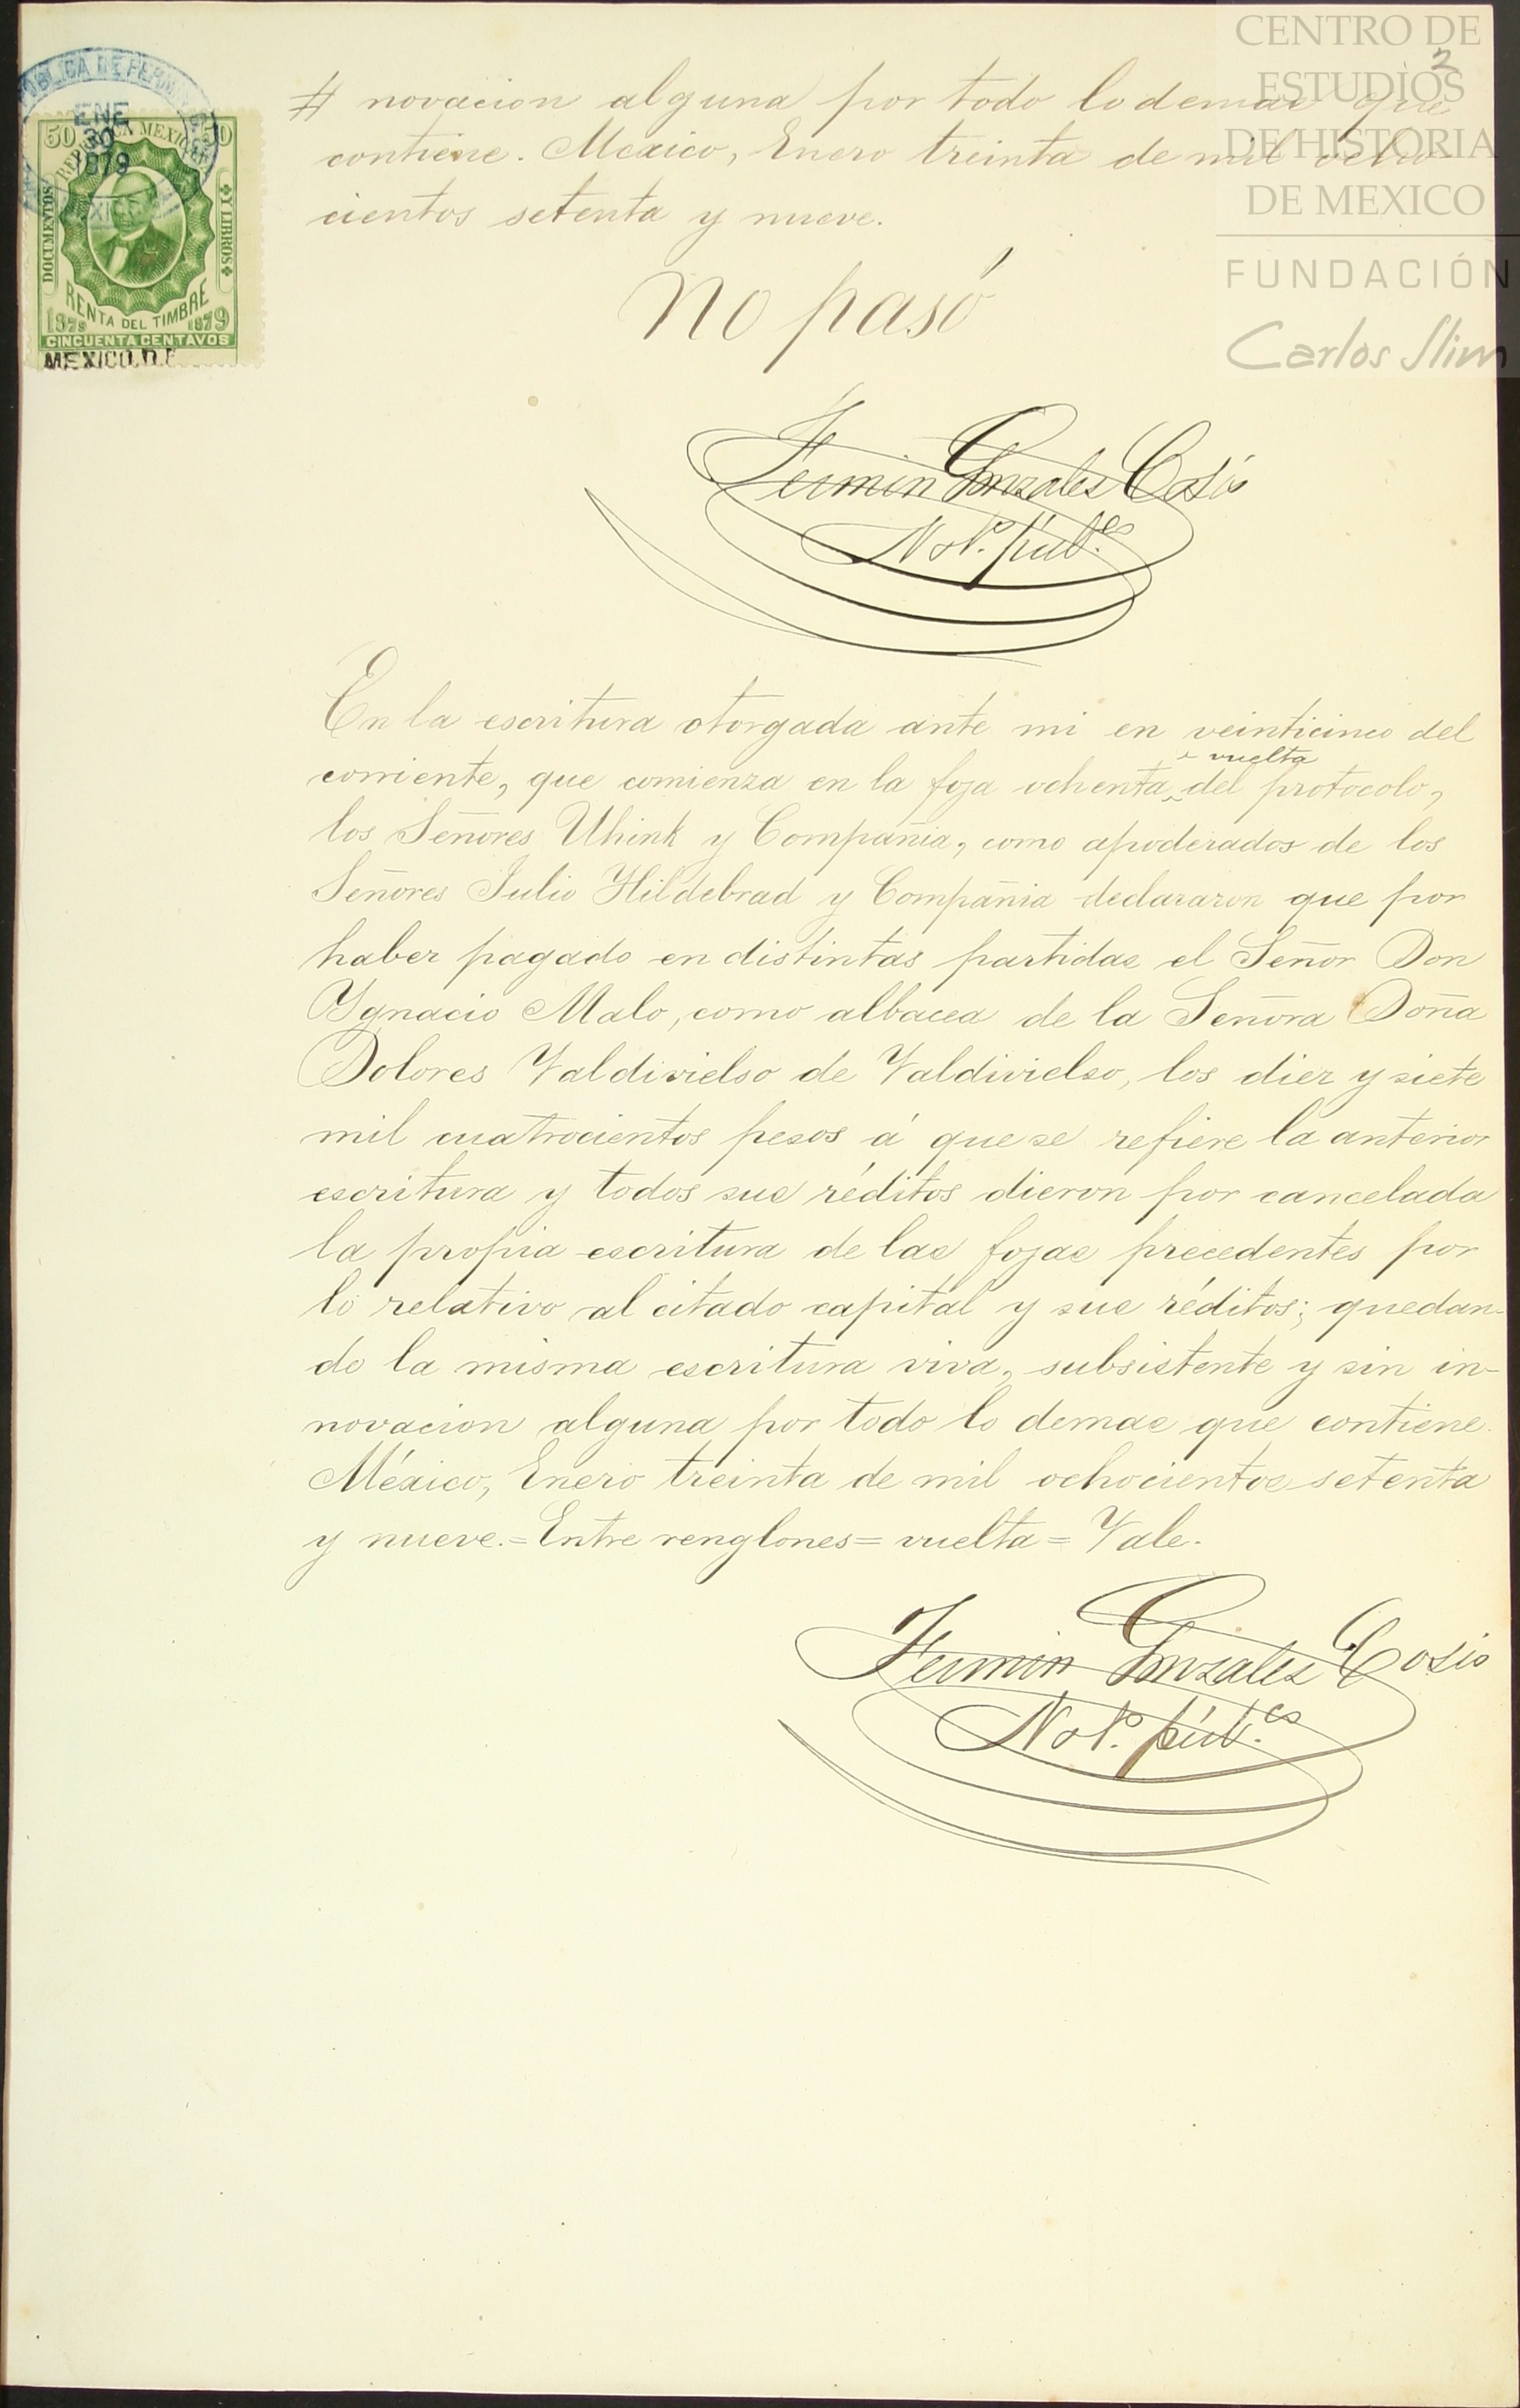 CENTRO DE
ESTUDIOS
DE HISTORIA
DE MEXICO
FUNDACIÓN
Carlos Slim
2
ENE
30
1879
50 REPUBLICA MEXICANA 50
DOCUMENTOS
Y LIBROS
RENTA DEL TIMBRE
1878 1879
CINCUENTA CENTAVOS
MEXICO. D. F.
# novacion alguna por todo lo demas que
contiene. Mexico, Enero treinta de mil ocho
cientos setenta y nueve.
No pasó
Fermin Gonzalez Cosío
Not.º púb.co
En la escritura otorgada ante mi en veinticinco del
vuelta
corriente, que comienza en la foja ochenta del protocolo,
los Señores Uhink y Compañia, como apoderados de los
Señores Julio Hildebrad y Compañia declararon que por
haber pagado en distintas partidas el Señor Don
Ygnacio Malo, como albacea de la Señora Doña
Dolores Valdivielso de Valdivielso, los diez y siete
mil cuatrocientos pesos á que se refiere la anterior
escritura y todos sus réditos dieron por cancelada
la propia escritura de las fojas precedentes por
lo relativo al citado capital y sus réditos; quedan-
do la misma escritura viva, subsistente y sin in-
novacion alguna por todo lo demas que contiene.
México, Enero treinta de mil ochocientos setenta
y nueve.=Entre renglones=vuelta=Vale.
Fermin Gonzalez Cosio
Not.º púb.co